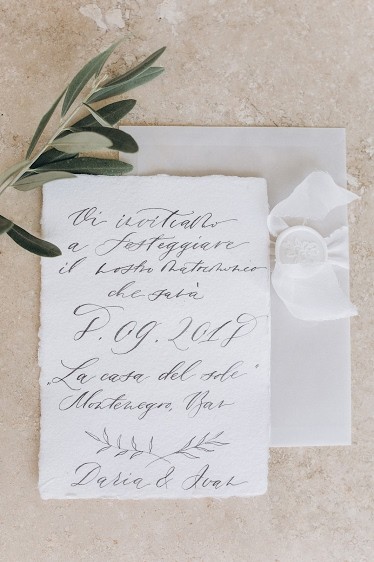 Vi invitiamo
a festeggiare
il nostro matrimonio
che sarà
8.09.2018
„La casa del sole"
Montenegro, Bar
Daria & Ivan